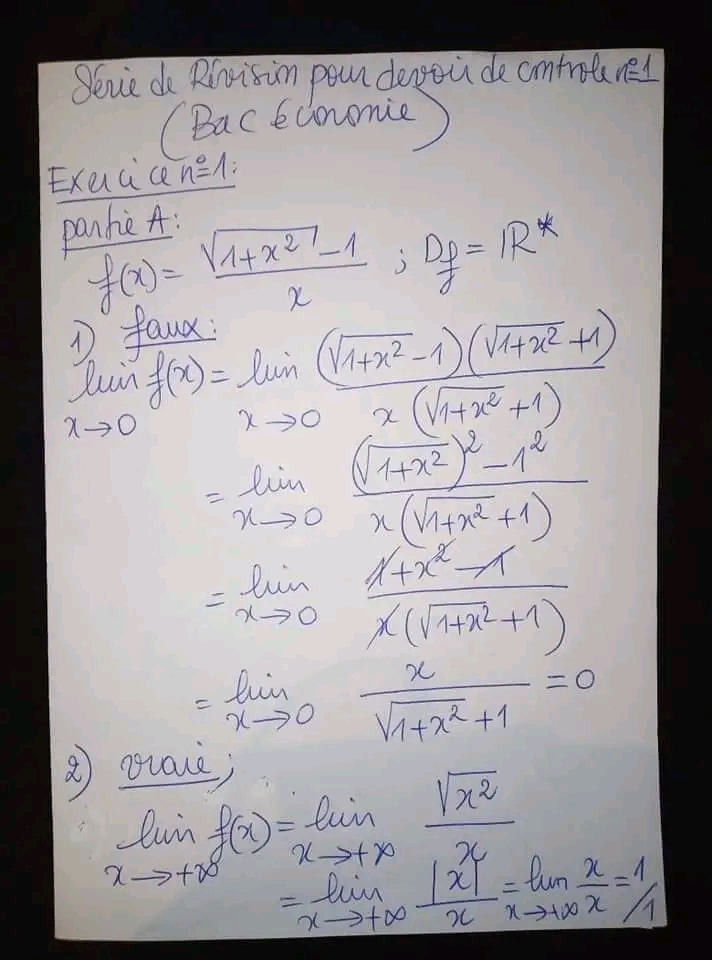 Série de Révision pour devoir de controle n°=1
(Bac économie)
Exercice n°=1:
partie A:
f(x) = (√(1+x²) - 1)/x ; Df = IR*
1) faux:
lim x→0 f(x) = lim x→0 (√(1+x²) - 1)(√(1+x²) + 1) / x(√(1+x²) + 1)
= lim x→0 (√(1+x²))² - 1² / x(√(1+x²) + 1)
= lim x→0 1+x² - 1 / x(√(1+x²) + 1)
= lim x→0 x / √(1+x²) + 1 = 0
2) vraie;
lim x→+∞ f(x) = lim x→+∞ √x² / x
= lim x→+∞ |x| / x = lim x→+∞ x/x = 1
/1